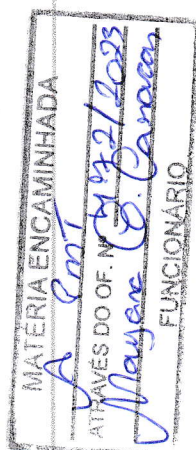 MATÉRIA ENCAMINHADA
À PMT
ATRAVÉS DO OF. Nº /2023
Mayara
FUNCIONÁRIO